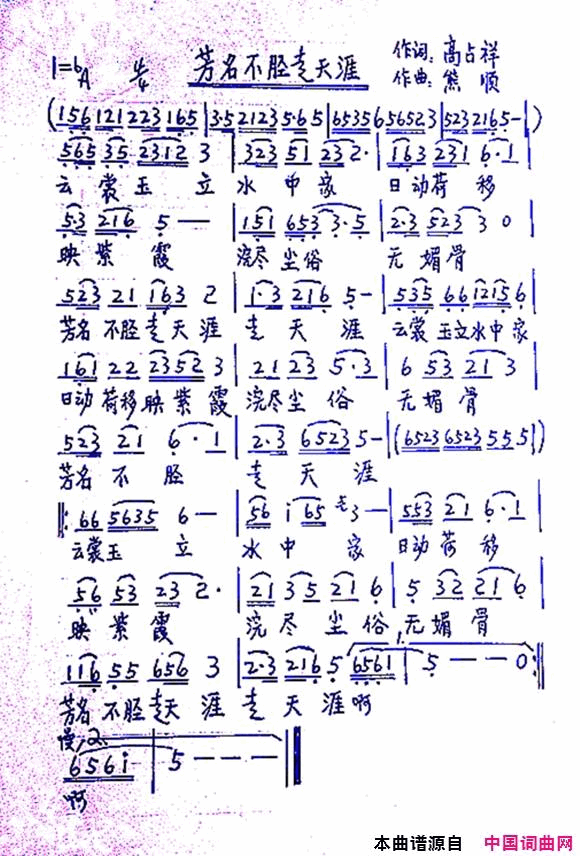 1=♭A 4/4 芳名不胫走天涯 作词:高占祥
作曲:熊顺
(156 121223165|3·52123 5·65|65356 565623|5232165-|)
565 35 2312 3 |323 51 232·|163 231 6·1
云裳玉立 水中家 日动荷移
5·3 216 5 - - |151 653 3·5|2·3 523 3 0
映紫霞 浣尽尘俗 无媚骨
523 21 163 2 |1·3 216 5 -|535 66 12156|
芳名不胫走天涯 走天涯 云裳玉立水中家
161 22 2352 3 |21 23 5·3|6 53 21 3
日动荷移映紫霞 浣尽尘俗 无媚骨
523 21 6·1 |2·3 6523 5-|(6523 6523 5 5 5|)
芳名不胫 走天涯
‖: 66 5635 6 - |56 i 65 3 -|553 21 6·1
云裳玉立 水中家 日动荷移
56 53 23 2· |21 35 21 6|5 32 21 6|
映紫霞 浣尽尘俗 无媚骨
116 55 656 3 |2·3 216 5 6561|1. 5 - - 0 :‖
芳名不胫走天涯 走天涯啊
慢 2.
656i | 5 - - - ‖
啊
本曲谱源自 中国词曲网